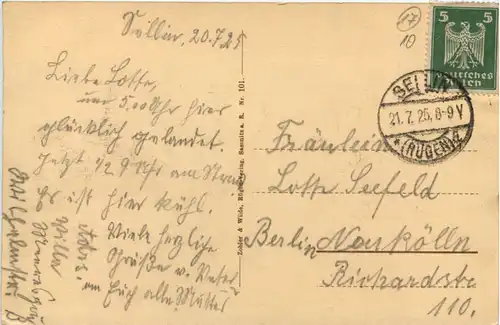 Sellin, 20.7.25
Liebe Lotte,
um 5.00 Uhr hier
glücklich gelandet.
Jetzt 1/2 9 Uhr am Strand
Es ist hier kühl.
Viele herzliche
Grüße v. Vater
an Euch alle Mutter
Adr:
Villa
Wilhelmstr.
Rügen Verlag, Sassnitz a. R. Nr. 101.
17
10
5 5
Deutsches
Reich
SELLIN
21.7.25, 8-9V
* (RÜGEN) a
Fräulein
Lotte Seefeld
Berlin Neukölln
Richardstr
110.